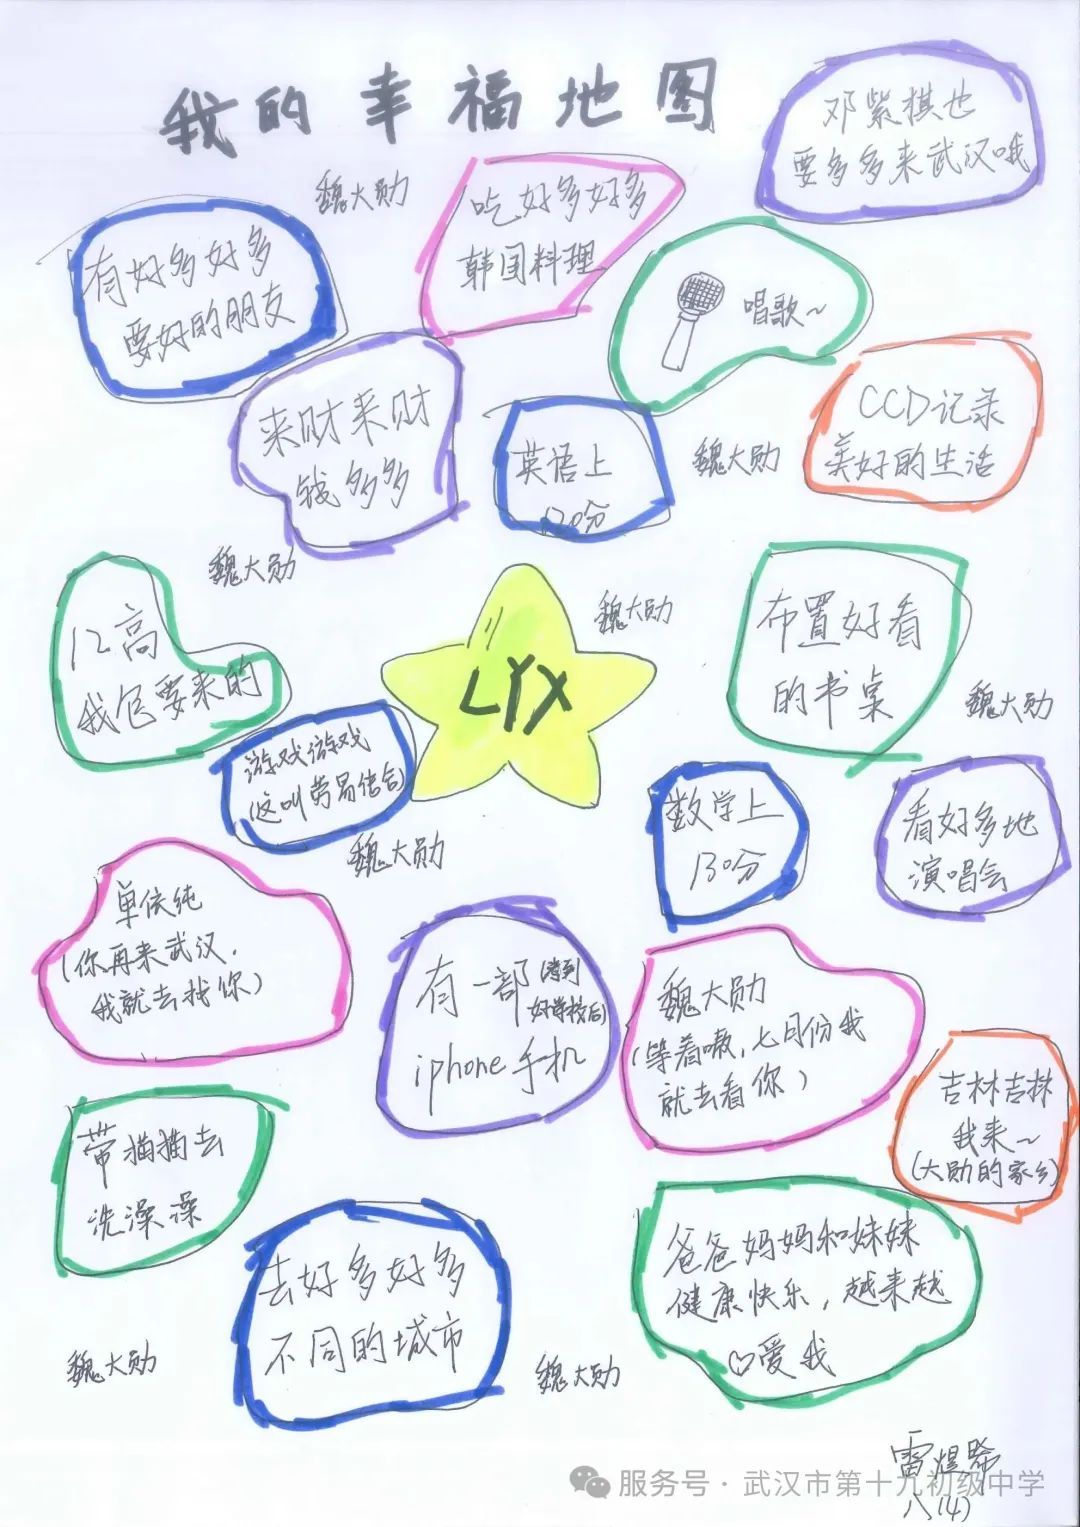 我的幸福地图
邓紫棋也
要多多来武汉哦
魏大勋
吃好多好多
韩国料理
有好多好多
要好的朋友
唱歌~
来财来财
钱多多
英语上
120分
魏大勋
CCD记录
美好的生活
魏大勋
12高
我包要来的
LYX
魏大勋
布置好看
的书桌
魏大勋
游戏游戏
(这叫劳易结合)
魏大勋
数学上
130分
看好多地
演唱会
单依纯
(你再来武汉,
我就去找你)
有一部(考到
好学校后)
iphone手机
魏大勋
(等着嗷,七月份我
就去看你)
吉林吉林
我来~
(大勋的家乡)
带猫猫去
洗澡澡
去好多好多
不同的城市
爸爸妈妈和妹妹
健康快乐,越来越
♡爱我
魏大勋
魏大勋
雷煜
八(4)
服务号·武汉市第十九初级中学